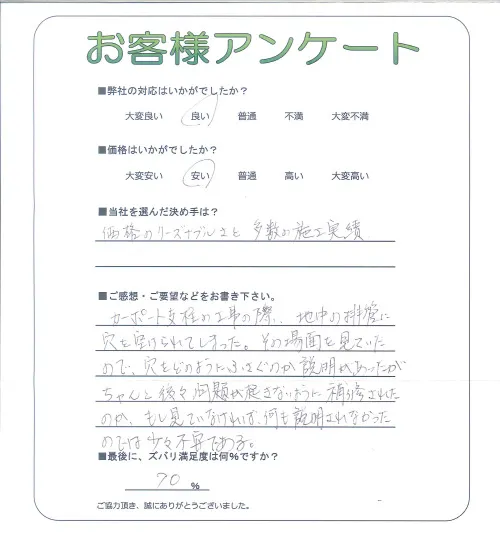 お客様アンケート
■弊社の対応はいかがでしたか？
大変良い 良い 普通 不満 大変不満
■価格はいかがでしたか？
大変安い 安い 普通 高い 大変高い
■当社を選んだ決め手は？
価格のリーズナブルさと 多数の施工実績
■ご感想・ご要望などをお書き下さい。
カーポート支柱の工事の際、地中の排管に
穴を空けられてしまった。その場面を見ていた
ので、穴をどのようにふさぐのか説明があったが
ちゃんと後々問題が起きないように補修された
のか、もし見ていなければ、何も説明されなかった
のでは少々不安である。
■最後に、ズバリ満足度は何％ですか？
70 ％
ご協力頂き、誠にありがとうございました。